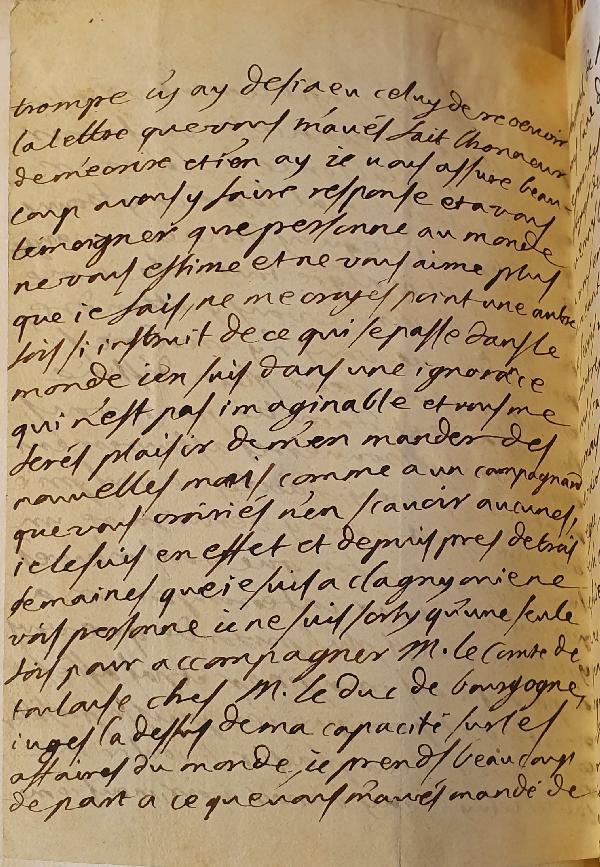 trompe i'y ay desia eu celuy de recevoir
la lettre que vous m'aués fait lhonneur
de m'ecrire et i'en ay ie vous assure beau-
coup a vous y faire response et a vous
temoigner que personne au monde
ne vous estime et ne vous aime plus
que ie fais, ne me croyés point une autre
fois si instruit de ce qui se passe dans le
monde i'en suis dans une ignorance
qui n'est pas imaginable et vous me
ferés plaisir de m'en mander des
nouvelles mais comme a un campagnard
que vous croiriés n'en scavoir aucunes,
ie le suis en effet et depuis pres de trois
semaines que ie suis a clagny ou ie ne
vois personne ie ne suis sorty qu'une seule
fois pour accompagner M. le Comte de
toulouse chés M. le duc de bourgogne,
iugés la dessus de ma capacité sur les
affaires du monde, ie prends beaucoup
de part a ce que vous m'aués mandé de